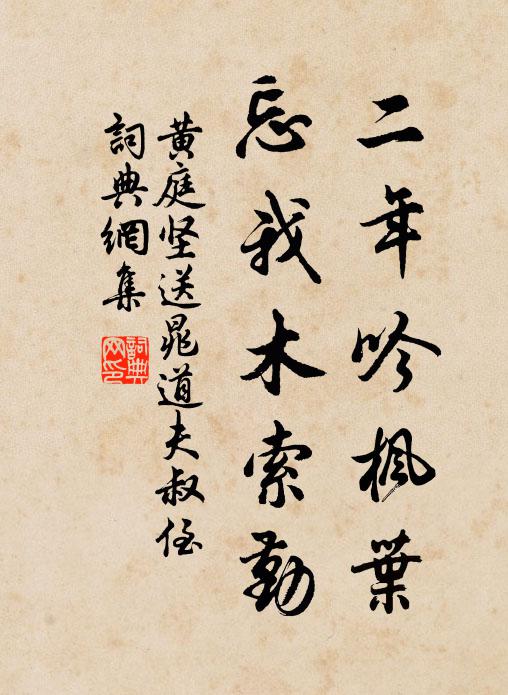 二年吟楓葉
忘我木索勤
黄庭坚送晁道夫叔侄
詞典網集
詞典網印